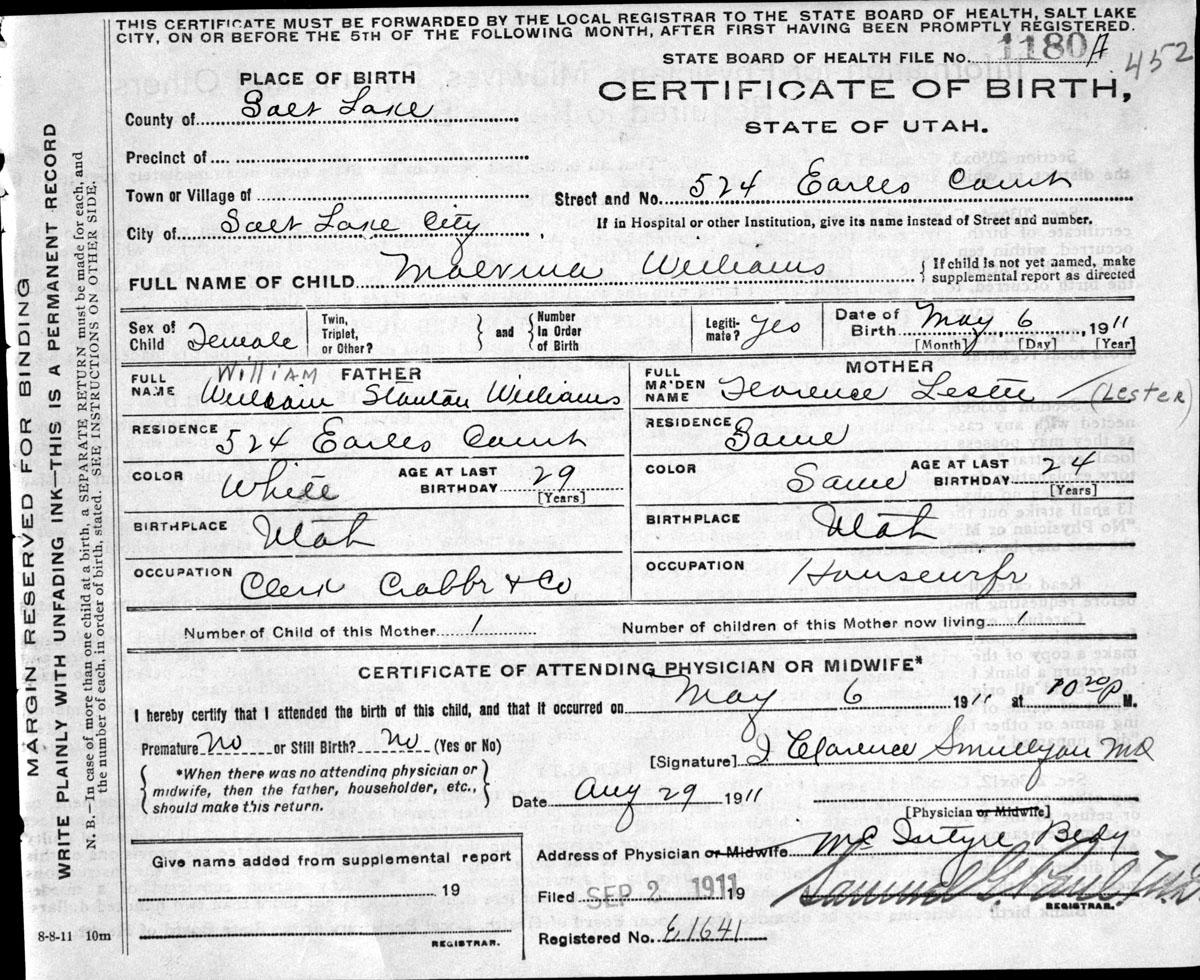 THIS CERTIFICATE MUST BE FORWARDED BY THE LOCAL REGISTRAR TO THE STATE BOARD OF HEALTH, SALT LAKE
CITY, ON OR BEFORE THE 5TH OF THE FOLLOWING MONTH, AFTER FIRST HAVING BEEN PROMPTLY REGISTERED.
STATE BOARD OF HEALTH FILE No. 1180 A 452
PLACE OF BIRTH
CERTIFICATE OF BIRTH,
STATE OF UTAH.
County of Salt Lake
Precinct of
Town or Village of
Street and No. 524 Earls Court
City of Salt Lake City
If in Hospital or other Institution, give its name instead of Street and number.
FULL NAME OF CHILD Malvina Williams
{ If child is not yet named, make
supplemental report as directed
Sex of Child Female
Twin, Triplet, or Other?
and Number In Order of Birth
Legiti-mate? Yes
Date of Birth May 6 1911
[Month] [Day] [Year]
FATHER
FULL NAME William Stanton Williams
WILLIAM
MOTHER
FULL MAIDEN NAME Florence Lester (LESTER)
RESIDENCE 524 Earls Court
RESIDENCE Same
COLOR White AGE AT LAST BIRTHDAY 29 [Years]
COLOR Same AGE AT LAST BIRTHDAY 24 [Years]
BIRTHPLACE Utah
BIRTHPLACE Utah
OCCUPATION Clerk & Co
OCCUPATION Housewife
Number of Child of this Mother 1
Number of children of this Mother now living 1
CERTIFICATE OF ATTENDING PHYSICIAN OR MIDWIFE*
I hereby certify that I attended the birth of this child, and that it occurred on May 6 1911 at P M.
Premature No or Still Birth? No (Yes or No)
[Signature] Clarence M D
{ *When there was no attending physician or
midwife, then the father, householder, etc.,
should make this return. }
Date Aug 29 1911
[Physician or Midwife]
Address of Physician or Midwife McIntyre
Give name added from supplemental report
19
REGISTRAR.
Filed SEP 2 1911 19
REGISTRAR.
Registered No. E1641
8-8-11 10m
MARGIN RESERVED FOR BINDING
WRITE PLAINLY WITH UNFADING INK-THIS IS A PERMANENT RECORD
N. B.—In case of more than one child at a birth, a SEPARATE RETURN must be made for each, and
the number of each, in order of birth, stated. SEE INSTRUCTIONS ON OTHER SIDE.